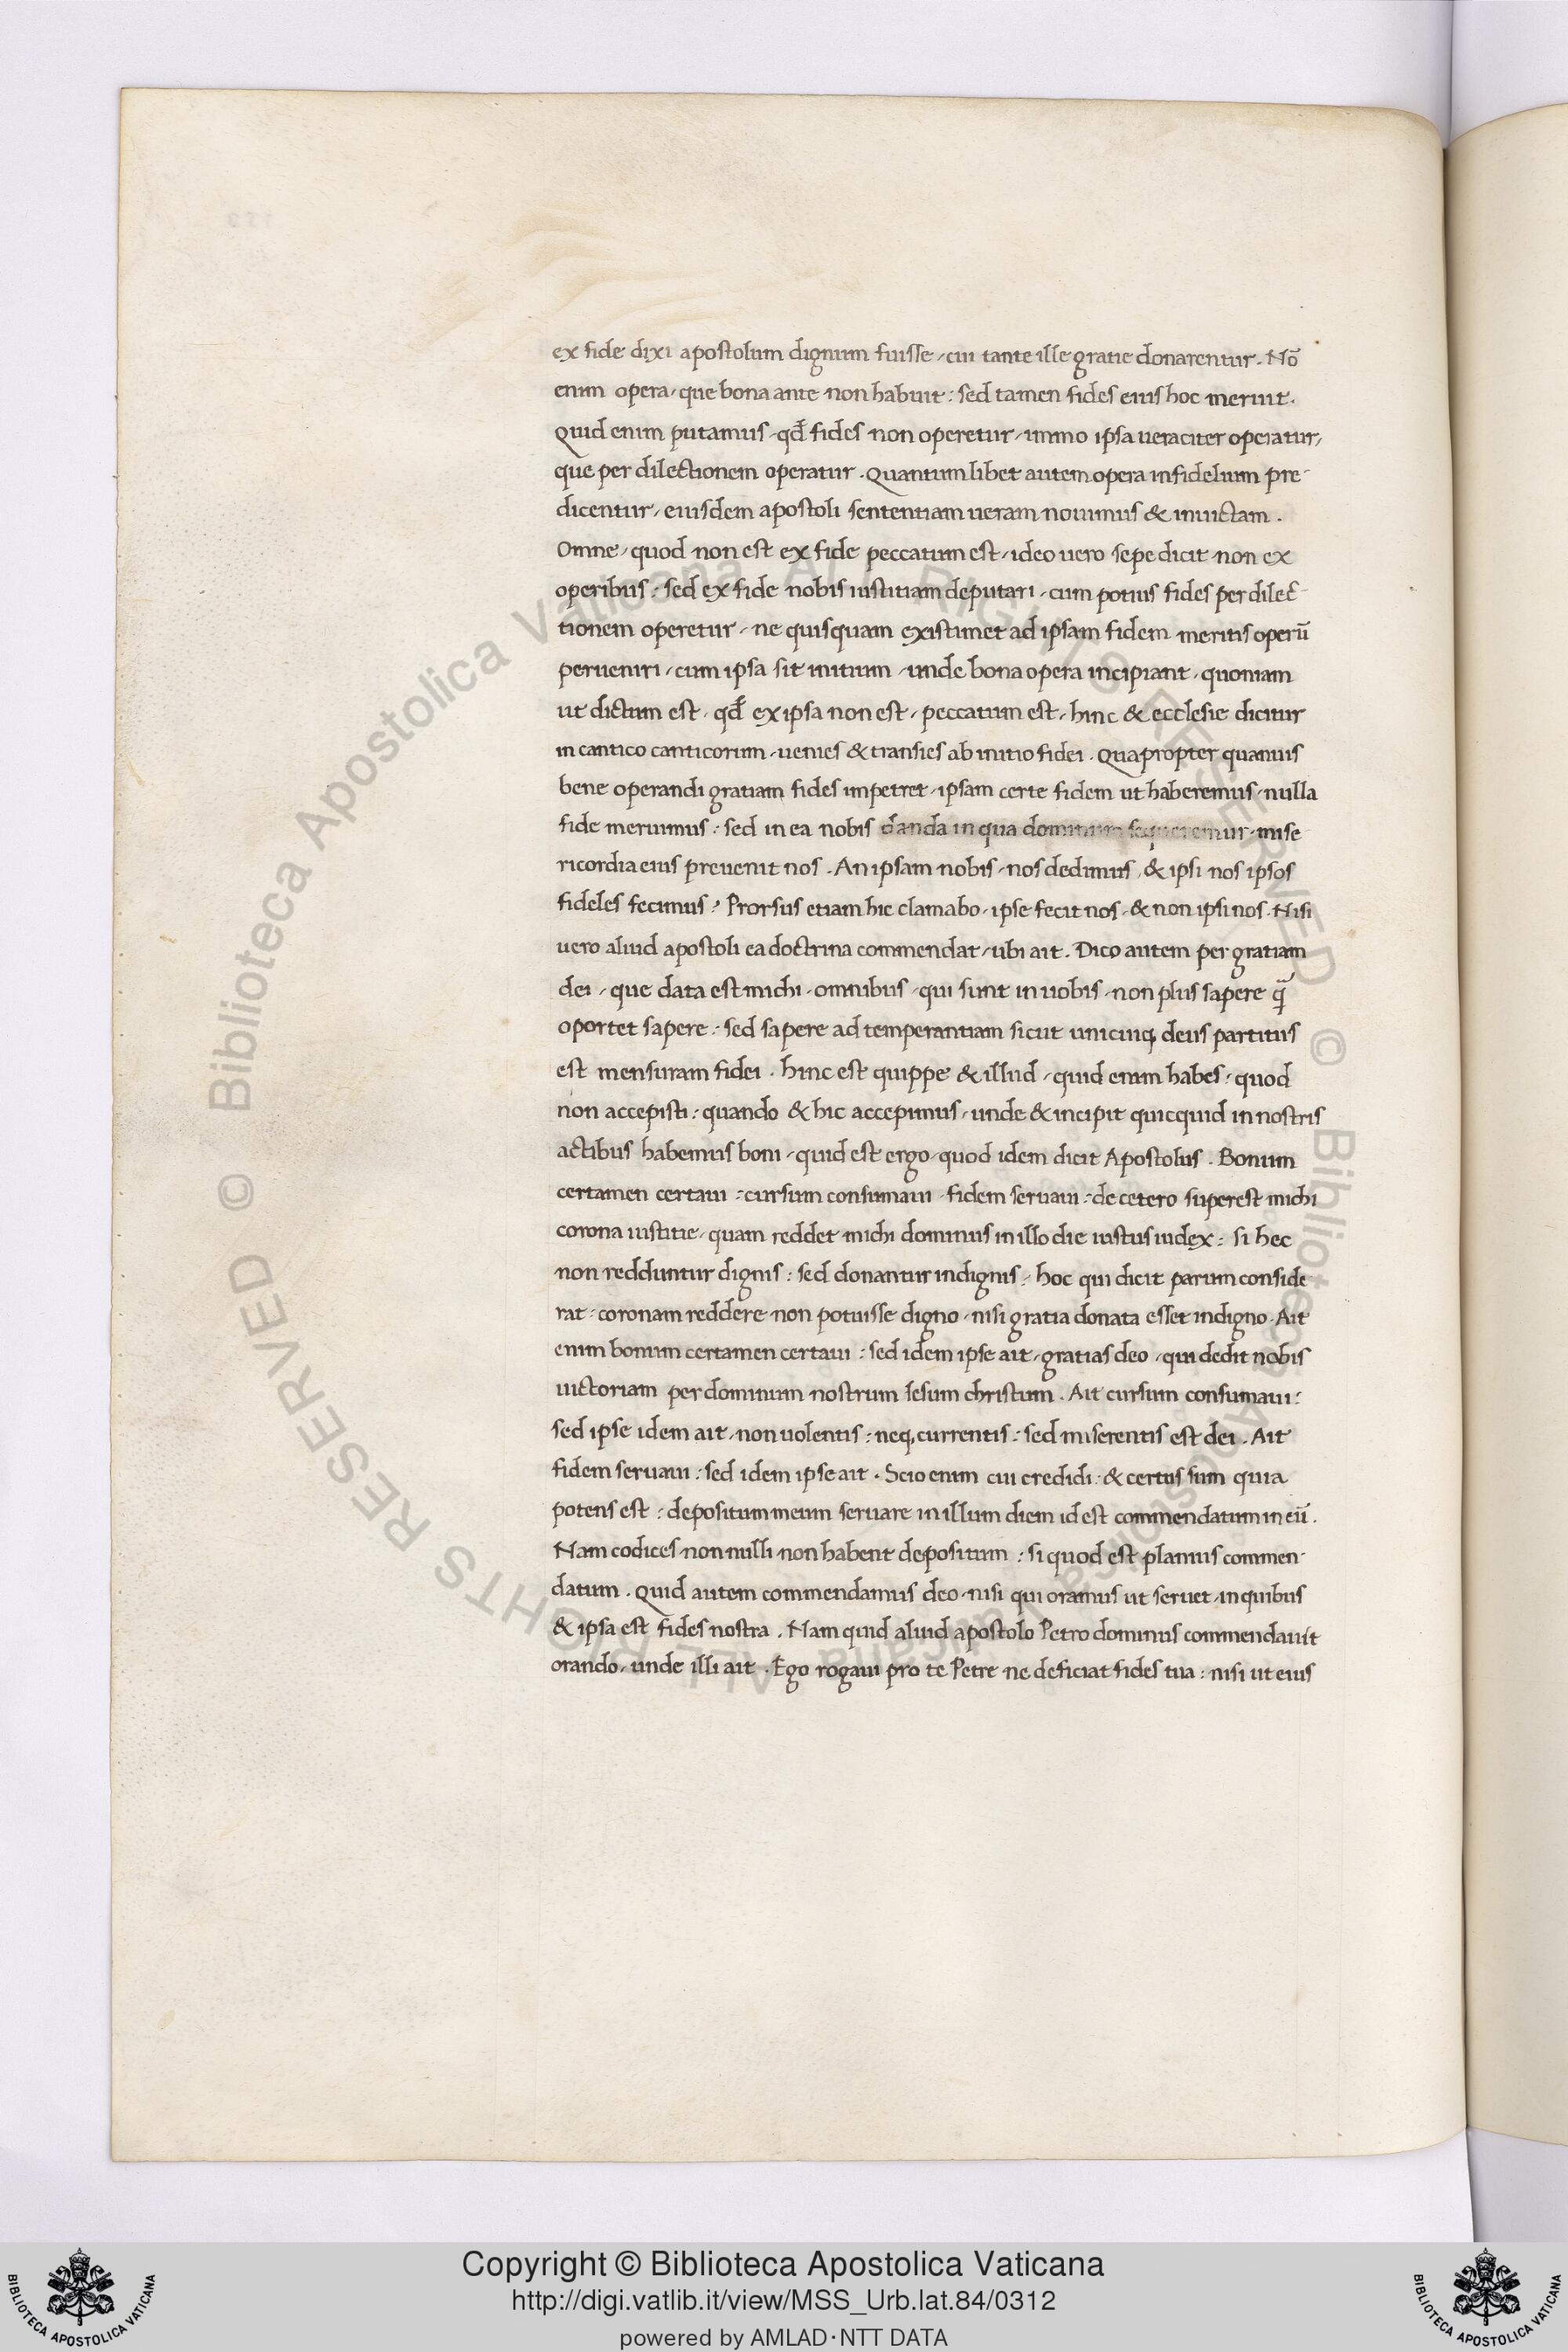 ex fide dixi apostolum dignum fuisse, cui tante ille gratie donarentur. Nō
enim opera, que bona ante non habuit: sed tamen fides eius hoc meruit.
Quid enim putamus, qđ fides non operetur, immo ipsa ueraciter operatur,
que per dilectionem operatur. Quantum libet autem opera infidelium pre-
dicentur, eiusdem apostoli sententiam ueram nouimus & inuictam.
Omne, quod non est ex fide peccatum est, ideo uero sepe dicit non ex
operibus: sed ex fide nobis iustitiam deputari, cum potius fides per dilec-
tionem operetur, ne quisquam existimet ad ipsam fidem meritis operū
perueniri, cum ipsa sit initium, unde bona opera incipiant, quoniam
ut dictum est, qđ ex ipsa non est, peccatum est, hinc & ecclesie dicitur
in cantico canticorum, uenies & transies ab initio fidei. Quapropter quamuis
bene operandi gratiam fides impetret, ipsam certe fidem ut haberemus, nulla
fide meruimus: sed in ea nobis danda in qua dominum sequeremur, mise
ricordia eius preuenit nos. An ipsam nobis, nos dedimus, & ipsi nos ipsos
fideles fecimus? Prorsus etiam hic clamabo, ipse fecit nos, & non ipsi nos. Nisi
uero aliud apostoli ea doctrina commendat, ubi ait. Dico autem per gratiam
dei, que data est michi, omnibus, qui sunt in uobis, non plus sapere q̃
oportet sapere: sed sapere ad temperantiam sicut unicuiq, deus partitus
est mensuram fidei. hinc est quippe & illud, quid enim habes, quod
non accepisti: quando & hic accepimus, unde & incipit quicquid in nostris
actibus habemus boni, quid est ergo, quod idem dicit Apostolus. Bonum
certamen certaui: cursum consumaui, fidem seruaui: de cetero superest michi
corona iustitie, quam reddet michi dominus in illo die iustus iudex: si hec
non redduntur dignis: sed donantur indignis: hoc qui dicit parum conside
rat: coronam reddere non potuisse digno, nisi gratia donata esset indigno. Ait
enim bonum certamen certaui: sed idem ipse ait, gratias deo, qui dedit nobis
uictoriam per dominum nostrum Iesum christum. Ait cursum consumaui:
sed ipse idem ait, non uolentis: neq, currentis: sed miserentis est dei. Ait
fidem seruaui: sed idem ipse ait. Scio enim cui credidi: & certus sum quia
potens est: depositum meum seruare in illum diem id est commendatum meū.
Nam codices non nulli non habent depositum: si quod est planius commen-
datum. Quid autem commendamus deo, nisi qui oramus ut seruet, in quibus
& ipsa est fides nostra. Nam quid aliud apostolo Petro dominus commendauit
orando, unde illi ait. Ego rogaui pro te Petre ne deficiat fides tua: nisi ut eius
© Biblioteca Apostolica Vaticana ALL RIGHTS RESERVED © Biblioteca Apostolica Vaticana ALL RIGHTS RESERVED
Copyright © Biblioteca Apostolica Vaticana
http://digi.vatlib.it/view/MSS_Urb.lat.84/0312
powered by AMLAD·NTT DATA
BIBLIOTECA APOSTOLICA VATICANA
BIBLIOTECA APOSTOLICA VATICANA